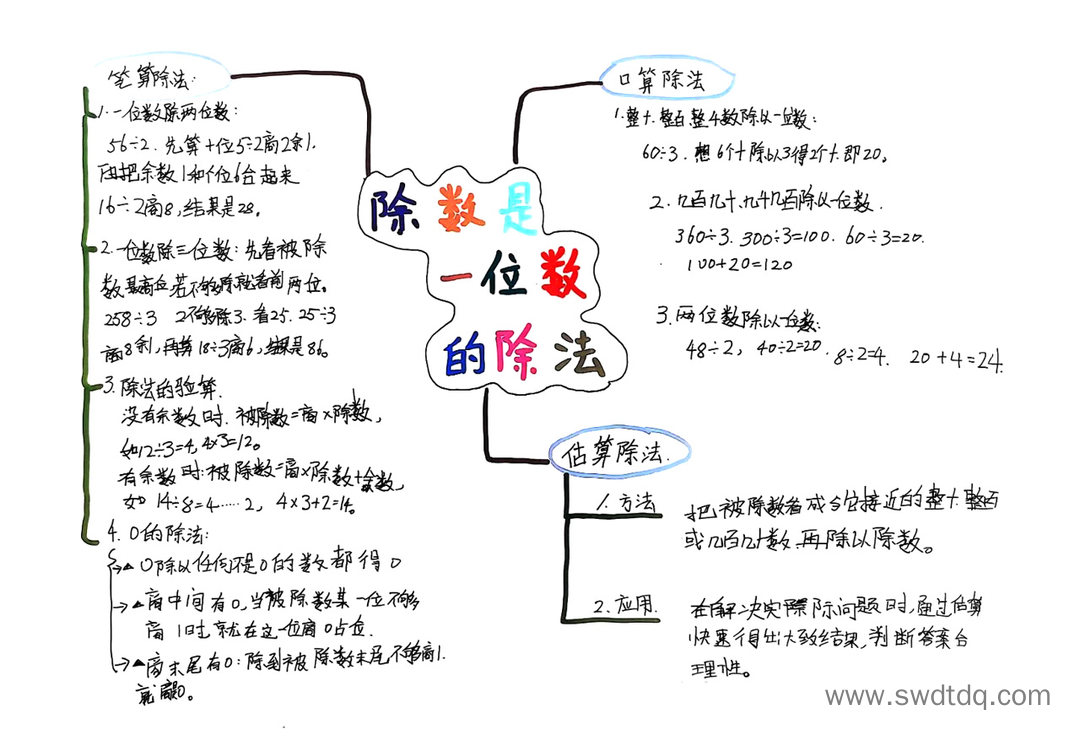 除数是
一位数
的除法
笔算除法:
1.一位数除两位数:
56÷2.先算十位5÷2商2余1.
再把余数1和个位6合起来
16÷2商8,结果是28。
2.一位数除三位数:先看被除
数最高位,若不够除就看前两位。
258÷3 2不够除3.看25.25÷3
商8余1,再算18÷3商6,结果是86。
3.除法的验算.
没有余数时.被除数=商×除数,
如12÷3=4,4×3=12。
有余数时:被除数=商×除数+余数,
如 14÷8=4……2, 4×3+2=14。
4. 0的除法:
→▲0除以任何不是0的数都得0
→▲商中间有0,当被除数某一位不够
商1时,就在这一位商0占位.
→▲商末尾有0:除到被除数末尾不够商1.
就商0。
口算除法
1.整十.整百整千数除以一位数:
60÷3.想6个十除以3得2个十.即20。
2.几百几十.几千几百除以一位数.
360÷3. 300÷3=100. 60÷3=20.
100+20=120
3.两位数除以一位数:
48÷2, 40÷2=20. 8÷2=4. 20+4=24.
估算除法.
1.方法
把被除数看成与它接近的整十.整百
或几百几十数.再除以除数。
2.应用.
在解决实际问题时,通过估算
快速得出大致结果,判断答案合
理性。
www.swdtdq.com